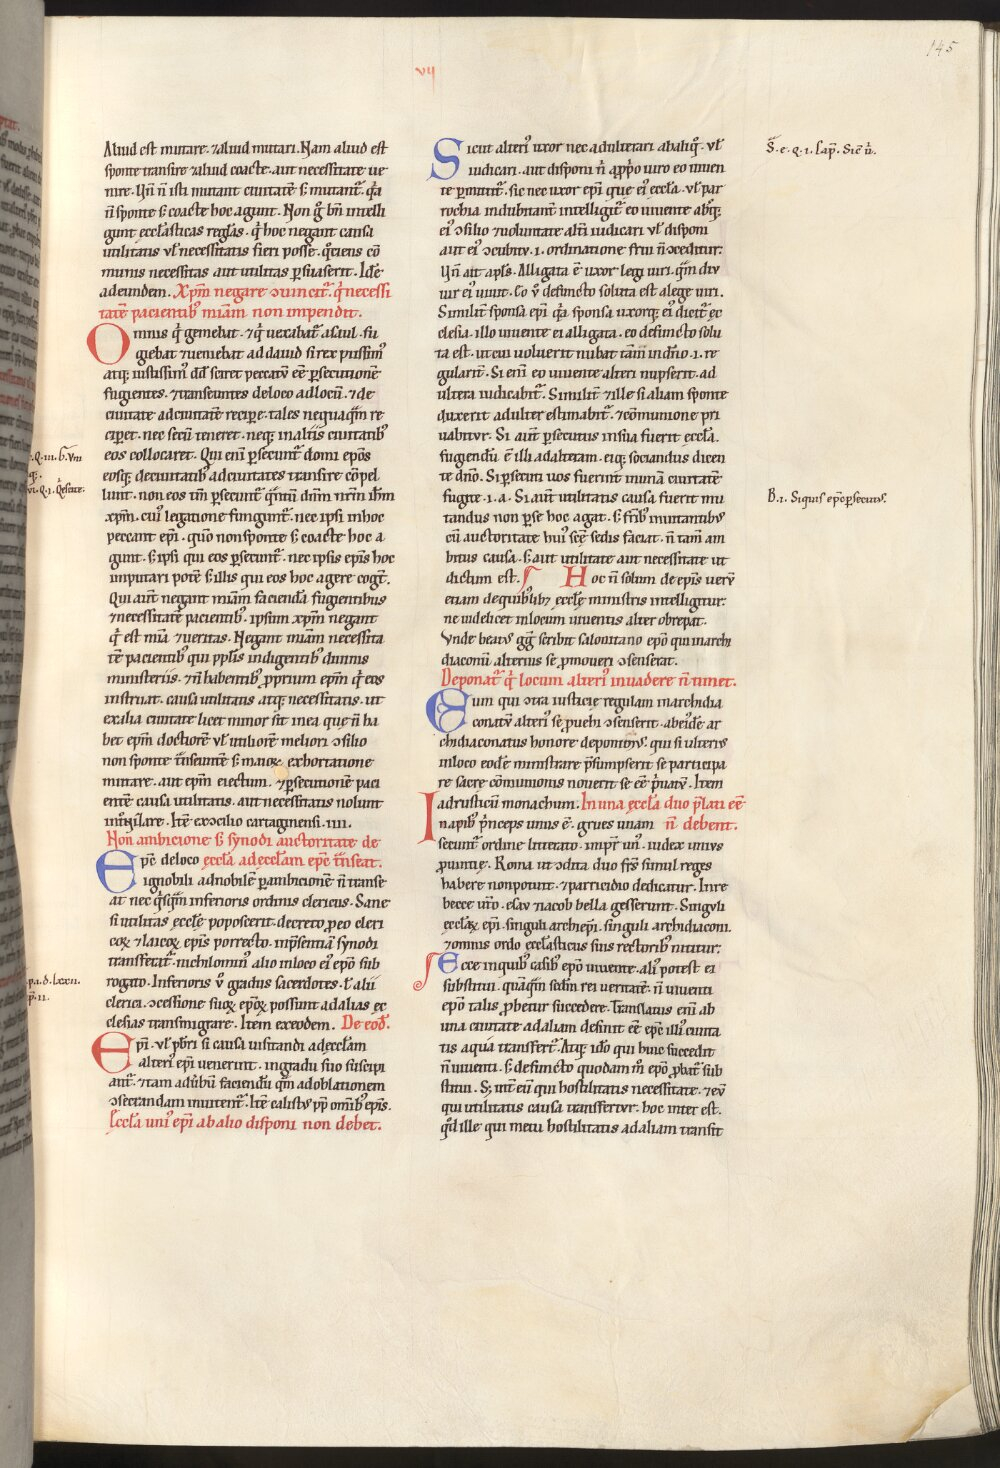 145
vij
Aliud est mutare. ⁊ aliud mutari. Nam aliud est
sponte transire ⁊ aliud coacte. aut necessitate ue
nire. Vñ ñ isti mutant ciuitatē s; mutant᷑. q̇a
ñ sponte s; coacte hoc agunt. Non g̊ bñ intelli
gunt ecclasticas reglas. q̇ hoc negant causa
utilitatis vł necessitatis fieri posse. q̊ciens cō
munis necessitas aut utilitas p̱suaserit. Idē
ad eundem. Xp̄m negare ɔuincit᷑. q̇ necessi
tatē pacientib; miam non impendit.
Omnis q̇ gemebat. ⁊ q̇ uexabat᷑ a saul. fu
giebat ⁊ ueniebat ad dauid si rex piissim᷒
atq; iustissim᷒ dd̄ sciret peccatū eē p̱secutionē
fugientes. ⁊ transeuntes de loco ad locū. ⁊ de
ciuitate ad ciuitatē recip̱e. tales nequaq̄m re
cip̱et. nec secū teneret. neq; in aliis ciuitatib;
eos collocaret. Qui eni p̱secunt᷑ domi ep̄os
eosq; de ciuitatib; ad ciuitates transire cōpel
lunt. non eos tm̄ p̱secunt᷑ q̄ntū dnm̄ nrm̄ ihm̄
xp̄m. cui᷒ legatione fungunt᷑. nec ipsi in hoc
peccant epi. quō non sponte s; coacte hoc a
gunt. s; ipsi qui eos p̱secunt᷑. nec ipsis epis hoc
imputari potē s; illis qui eos hoc agere cogt᷑.
Qui aut̄ negant miam facienda fugientibus
⁊ necessitatē pacientib;. ipsum xp̄m negant
q̇ est mia ⁊ ueritas. Negant miam necessita
tē pacientib; qui pp̄lis indigentib; diuinis
ministeriis. ⁊ ñ habentib; p̱prium ep̄m q̇ eos
instruat. causa utilitatis atq; necessitatis. ut
ex alia ciuitate licet minor sit in ea quę ñ ha
bet ep̄m doctiorē vł utiliorē meliori ɔsilio
non sponte t̄nseuntē s; maioꝝ exhortatione
mittare. aut ep̄m eiectum. ⁊ p̱secutionē paci
entē causa utilitatis. aut necessitatis nolunt
int᷑nsilare. Itē ex ɔcilio cartaginensi. iiii.
Non ambicione s; synodi auctoritate de
Ep̄c de loco eccla ad ecclam ep̄c t̄nseat.
ignobili ad nobilē p̱ ambicionē ñ transe
at nec q̇sq̄m inferioris ordinis clericus. Sane
si utilitas ecclę poposcerit. decreto p̱ eo cleri
coꝝ ⁊ laicoꝝ epis porrecto. in p̄sentia synodi
transferat᷑. nichilomin᷒ alio in loco ei᷒ epō sub
rogato. Inferioris ṽ gradus sacerdotes. ł alii
clerici. ɔcessione suoꝝ epoꝝ possunt ad alias ec
clesias transmigrare. Item ex eodem. De eod̄.
Epi. vł pbri si causa uisitandi ad ecclam
alteri᷒ epi uenerint. in gradu suo suscipi
ant᷑. ⁊ tam ad ūbū faciendū q̄m ad oblationem
ɔsecrandam inuitent᷑. Itē calist᷒ pp̄ omib; epis.
Eccła uni᷒ epi ab alio disponi non debet.
Sicut alteri᷒ uxor nec adulterari ab aliq̊. vł
iudicari. aut disponi ñ a pp̱o uiro eo uiuen
te p̱mittit᷑. sic nec uxor epi que ei᷒ eccła. vł par
rochia indubitant̄ intelligit᷑ eo uiuente absq;
ei᷒ ɔsilio ⁊ uoluntate alt̄i iudicari vł disponi
aut ei᷒ ɔcubitu. i. ordinatione frui ñ ɔcedit᷑.
Vñ ait apłs. Alligata ē uxor legi uiri. q̄m diu
uir ei᷒ uiuit. eo ṽ defuncto soluta est a lege uiri.
Similit̄ sponsa epi q̇a sponsa uxorq; ei᷒ dicit᷑ ec
clesia. illo uiuente ei alligata. eo defuncto solu
ta est. ut cui uoluerit nubat tam̄ in dn̄o. i. re
gularit̄. Si eni eo uiuente alteri nupserit. ad
ultera iudicabit᷑. Similit̄ ⁊ ille si aliam sponte
duxerit adulter estimabit᷑. ⁊ cōmunione pri
uabitur. Si aut̄ p̱secutus in sua fuerit eccła.
fugiendū ē illi ad alteram. eiq; sociandus dicen
te dn̄o. Si p̱secuti uos fuerint in una ciuitatē
fugite. i. a. Si aut̄ utilitatis causa fuerit mu
tandus non p̱ se hoc agat. s; frib; inuitantib;
cū auctoritate hui᷒ scę sedis faciat. ñ tam am
bitus causa. s; aut utilitate aut necessitate ut
dictum est. Hoc ñ solum de epis uerū
etiam de quib;lib; ecclę ministris intelligitur.
ne uidelicet in locum uiuentis alter obrepat.
Vnde beat᷒ gg̊ scribit salonitano epō qui in archi
diaconū alterius se p̱moueri ɔsenserat.
Deponat᷑ q̇ locum alteri᷒ inuadere ñ timet.
Eum qui ɔtra iusticię regulam in archidia
conatū alteri᷒ se p̱uehi ɔsenserit. ab eide ar
chidiaconatus honore deponim᷒. qui si ulteri᷒
in loco eodē ministrare p̄sumpserit se participa
re sacrę cōmunionis nouerit se eē p̄uatū. Item
ad rusticū monachum. In una eccła duo p̄lati eē
In apib; p̄nceps unus ē. grues unam ñ debent.
secunt᷑ ordine litterato. imp̱t᷒ un᷒. iudex unus
p̱uincię. Roma ut ɔdita duo frs̄ simul reges
habere non potuit. ⁊ parricidio dedicatur. In re
becce ut̄o. esau ⁊ iacob bella gesserunt. Singuli
eccłaꝝ epi. singuli archiepi. singuli archidiaconi.
⁊ omnis ordo eccłasticus suis rectorib; nititur.
Ecce in quib; casib; epō uiuente. ali᷒ potest ei
substitui. quāq̄m sedm rei ueritatē. ñ uiuenti
epō talis p̱betur succedere. Translatus eni ab
una ciuitate ad aliam desinit eē ep̄c illi᷒ ciuita
tis a qua transfert᷑. Atq; ido qui huic succedit
ñ uiuenti. s; defuncto quodam m̊ epō p̱bat᷑ sub
stitui. S; int̄ eū qui hostilitatis necessitate. ⁊ eū
qui utilitatis causa transfertur. hoc inter est.
qd̄ ille qui metu hostilitatis ad aliam transit
B. i. Siquis ep̄c p̱secutus.